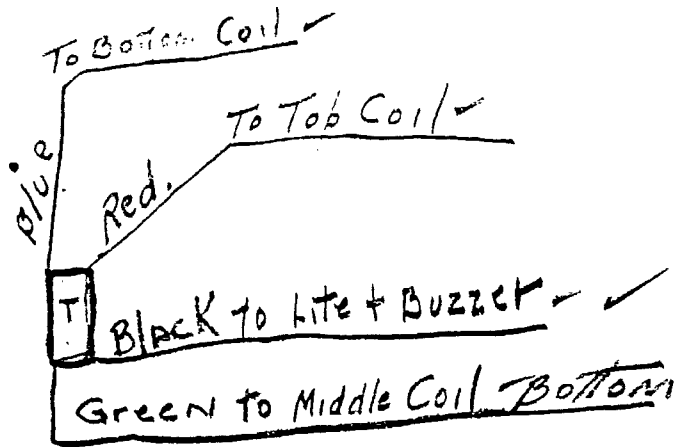 To Bottom Coil ✓
To Top Coil ✓
Blue
Red.
T
Black to Lite + Buzzer - ✓
Green to Middle Coil Bottom